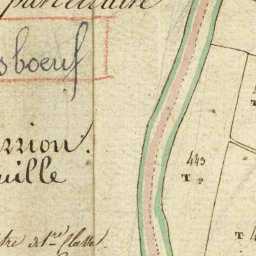 parcellaire
sboeuf
rrion.
uille
tre de 1re Classe
443
T.
T
T